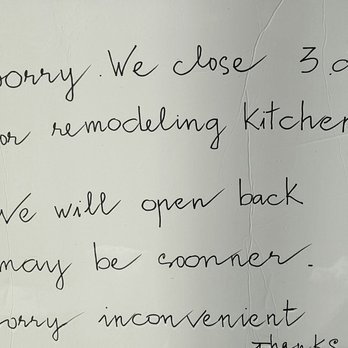 sorry. We close 3.
for remodeling kitchen
We will open back
may be soonner.
sorry inconvenient
thanks